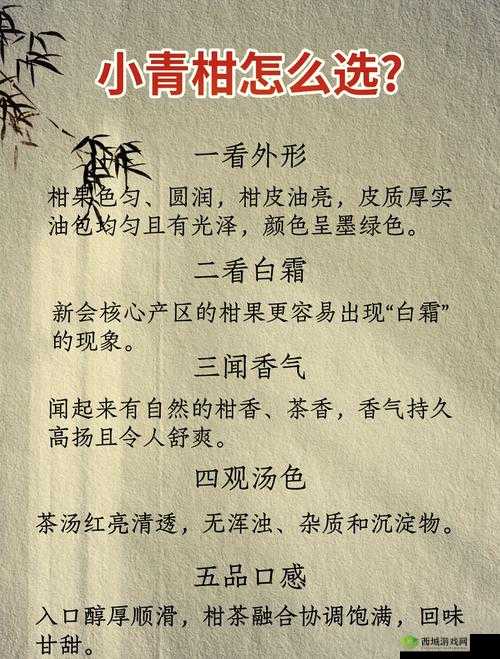 小青柑怎么选?
一看外形
柑果色匀、圆润，柑皮油亮，皮质厚实
油包均匀且有光泽，颜色呈墨绿色。
二看白霜
新会核心产区的柑果更容易出现“白霜”
的现象。
三闻香气
闻起来有自然的柑香、茶香，香气持久
高扬且令人舒爽。
四观汤色
茶汤红亮清透，无浑浊、杂质和沉淀物。
五品口感
入口醇厚顺滑，柑茶融合协调饱满，回味
甘甜。
西城游戏网